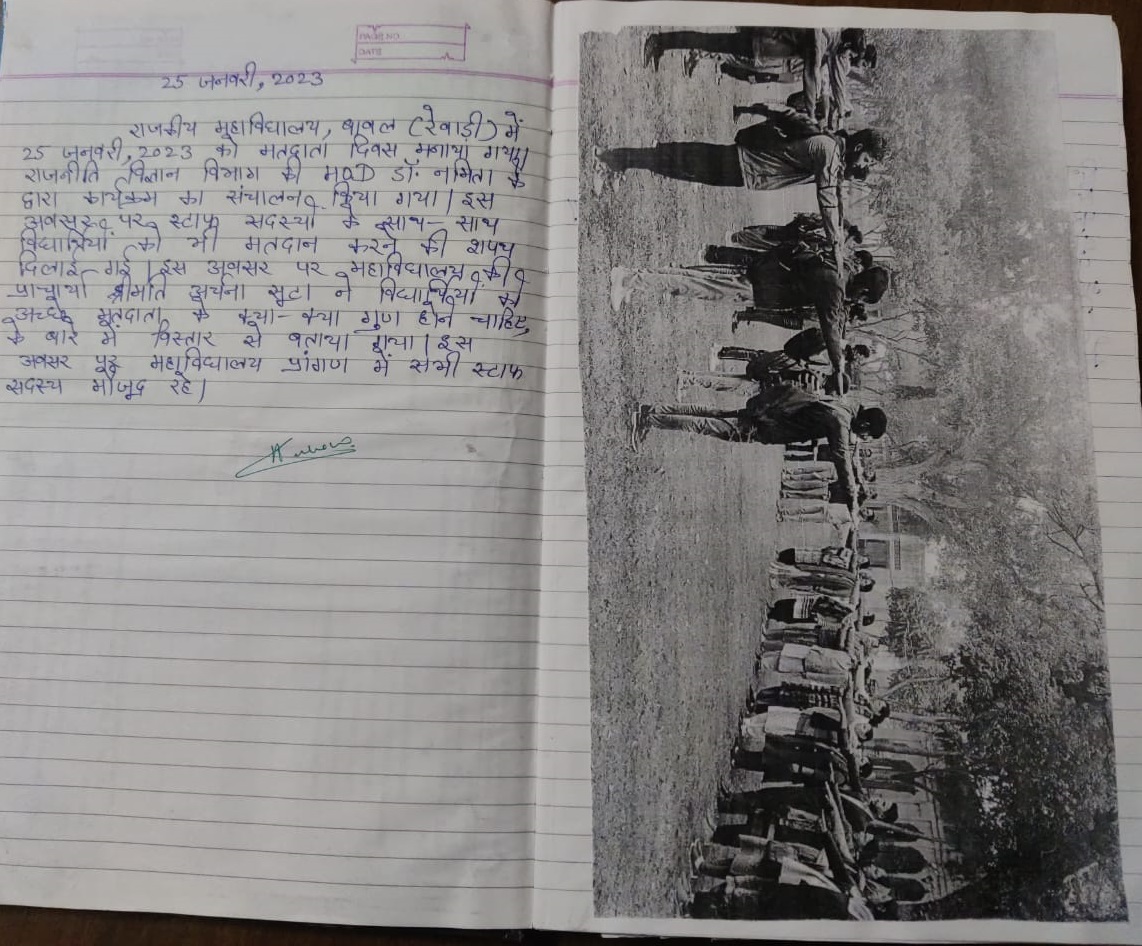 PAGE NO.
DATE
25 जनवरी, 2023
राजकीय महाविद्यालय, बावल (रेवाड़ी) में
25 जनवरी, 2023 को मतदाता दिवस मनाया गया।
राजनीति विज्ञान विभाग की HOD डॉ. नमिता के
द्वारा कार्यक्रम का संचालन किया गया। इस
अवसर पर स्टाफ सदस्यों के साथ-साथ
विद्यार्थियों को भी मतदान करने की शपथ
दिलाई गई। इस अवसर पर महाविद्यालय की
प्राचार्या श्रीमति अर्चना ने विद्यार्थियों को
अच्छे मतदाता के क्या-क्या गुण होने चाहिए,
के बारे में विस्तार से बताया गया। इस
अवसर पर महाविद्यालय प्रांगण में सभी स्टाफ
सदस्य मौजूद रहे।